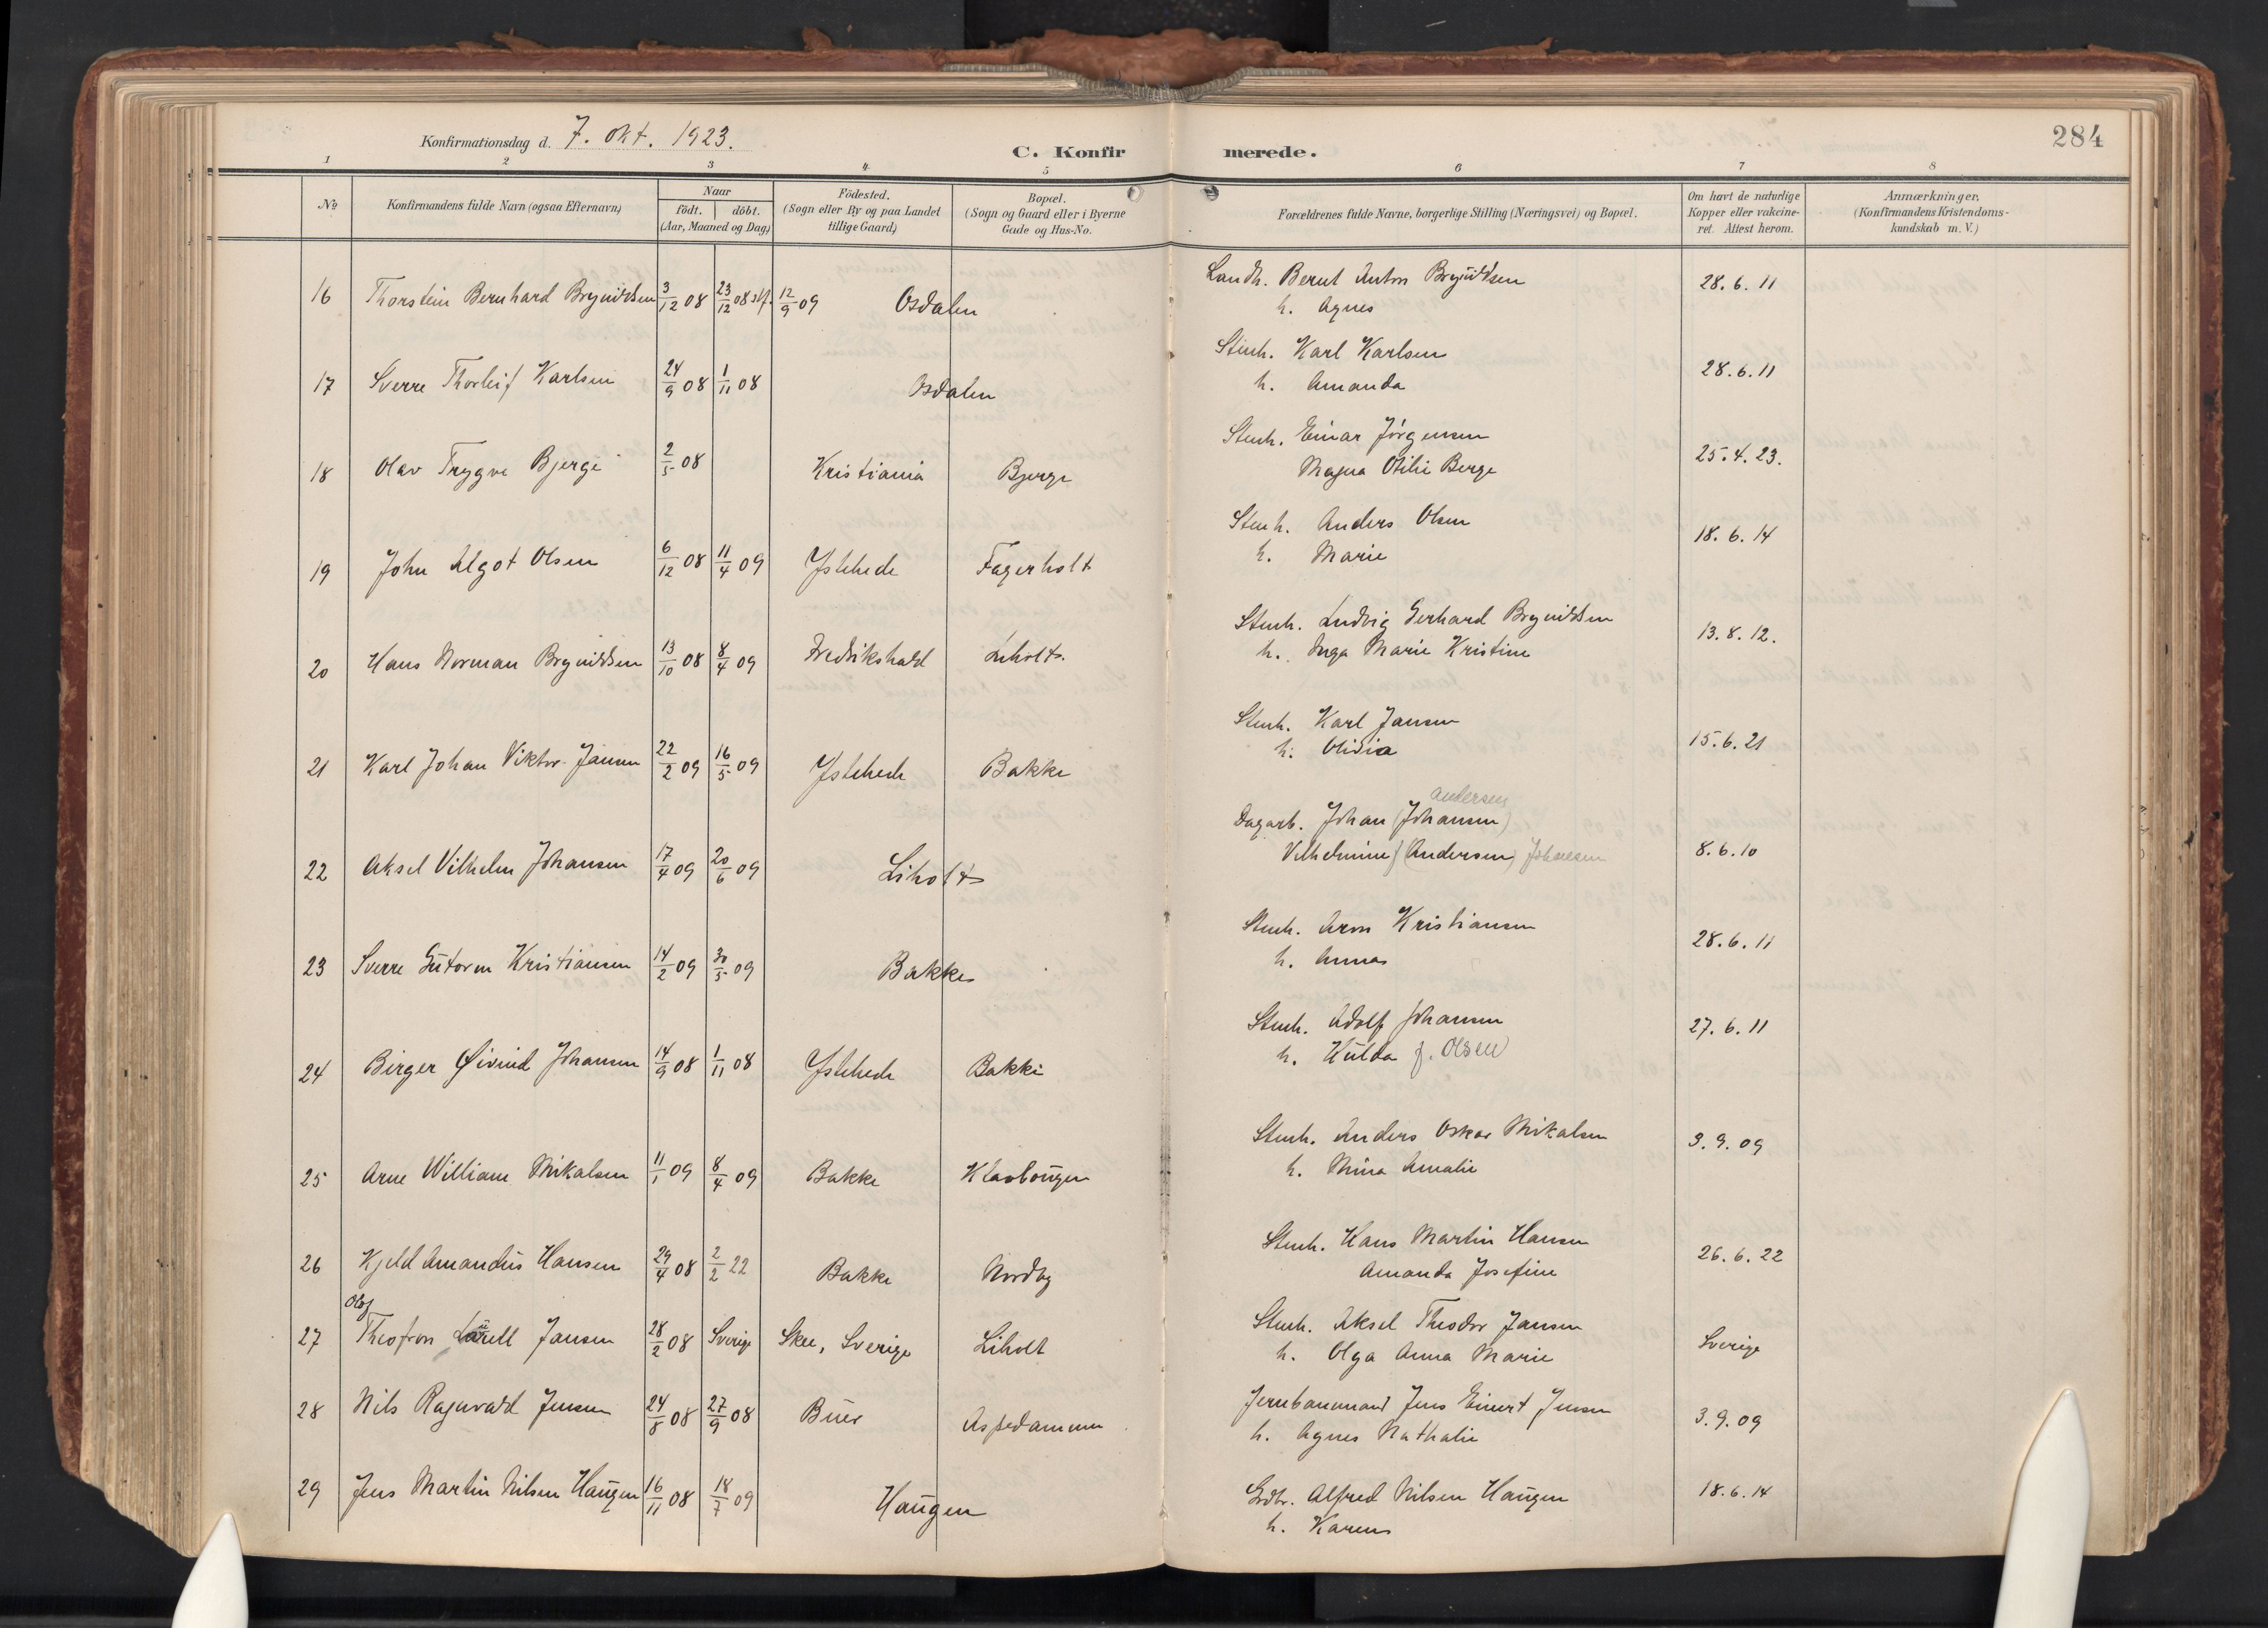 Konfirmationsdag d. 7. Okt. 1923.
C. Konfirmerede.
284
1 2 3 4 5 6 7 8
No
Konfirmandens fulde Navn (ogsaa Efternavn)
Naar
födt. | döbt.
(Aar, Maaned og Dag)
Födested.
(Sogn eller By og paa Landet
tillige Gaard)
Bopæl.
(Sogn og Gaard eller i Byerne
Gade og Hus-No.
Forældrenes fulde Navne, borgerlige Stilling (Næringsvei) og Bopæl.
Om havt de naturlige
Kopper eller vakcine-
ret. Attest herom.
Anmærkninger,
(Konfirmandens Kristendoms-
kundskab m. V.)
16 Thorstein Bernhard Brynildsen 3/12 08 23/12 08 stf. 12/9 09 Osdalen Landh. Bernt Anton Brynildsen 28.6.11
h. Agnes
17 Sverre Thorleif Karlsen 24/9 08 1/11 08 Osdalen Stenh. Karl Karlsen 28.6.11
h. Amanda
18 Olav Trygve Bjerge 2/5 08 Kristiania Bjerge Stenh. Einar Jörgensen 25.4.23.
Magna Otilie Berge
19 John Algot Olsen 6/12 08 11/4 09 Ystehede Fagerholt Stenh. Anders Olsen 18.6.14
h. Marie
20 Hans Norman Brynildsen 13/10 08 8/4 09 Fredrikshald Liholt Stenh. Ludvig Gerhard Brynildsen 13.8.12.
h. Inga Marie Kristine
21 Karl Johan Viktor Jansen 22/2 09 16/5 09 Ystehede Bakke Stenh. Karl Jansen 15.6.21
h. Olidia
22 Aksel Vilhelm Johansen 17/4 09 20/6 09 Liholt Dagarb. Johan (Johansen) Andersen 8.6.10
Vilhelmine (Andersen) Johansen
23 Sverre Gutorm Kristiansen 14/2 09 30/5 09 Bakke Stenh. Aron Kristiansen 28.6.11
h. Anna
24 Birger Øivind Johansen 14/9 08 1/11 08 Ystehede Bakke Stenh. Adolf Johansen 27.6.11
h. Hulda f. Olsen
25 Arne William Mikalsen 11/1 09 8/4 09 Bakke Klavbougen Stenh. Anders Oskar Mikalsen 3.9.09
h. Mina Amalie
26 Kjeld Amandus Hansen 29/4 08 2/2 22 Bakke Nordby Stenh. Hans Martin Hansen 26.6.22
Amanda Josefine
Olof
27 Theofron Jansen 28/2 08 Sverige Skee, Sverige Liholt Stenh. Aksel Theodor Jansen Sverige
h. Olga Anna Marie
28 Nils Ragnvald Jensen 24/8 08 27/9 08 Buer Aspedammen Jernbanemand Jens Einert Jensen 3.9.09
h. Agnes Nathalie
29 Jens Martin Nilsen Haugen 16/11 08 18/7 09 Haugen Grdbr. Alfred Nilsen Haugen 18.6.14
h. Karen